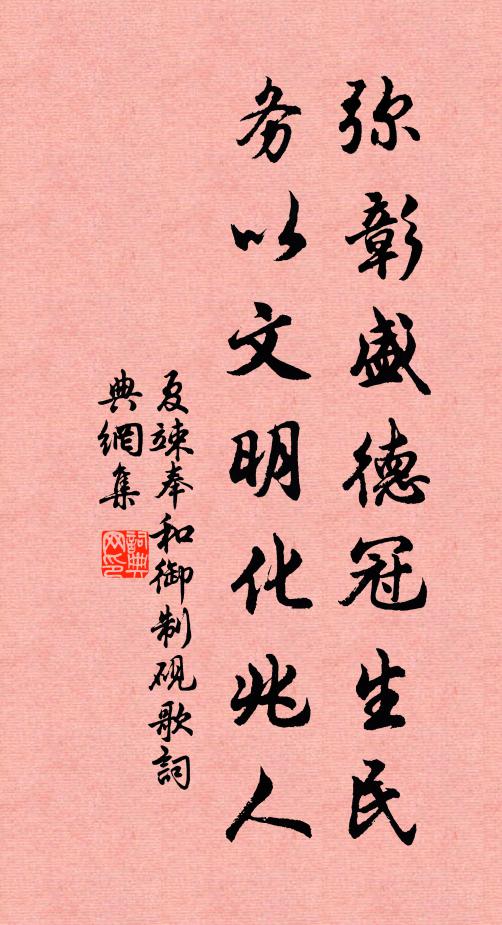 弥彰盛德冠生民
务以文明化兆人
夏竦奉和御制砚歌詞
典網集
詞典网印